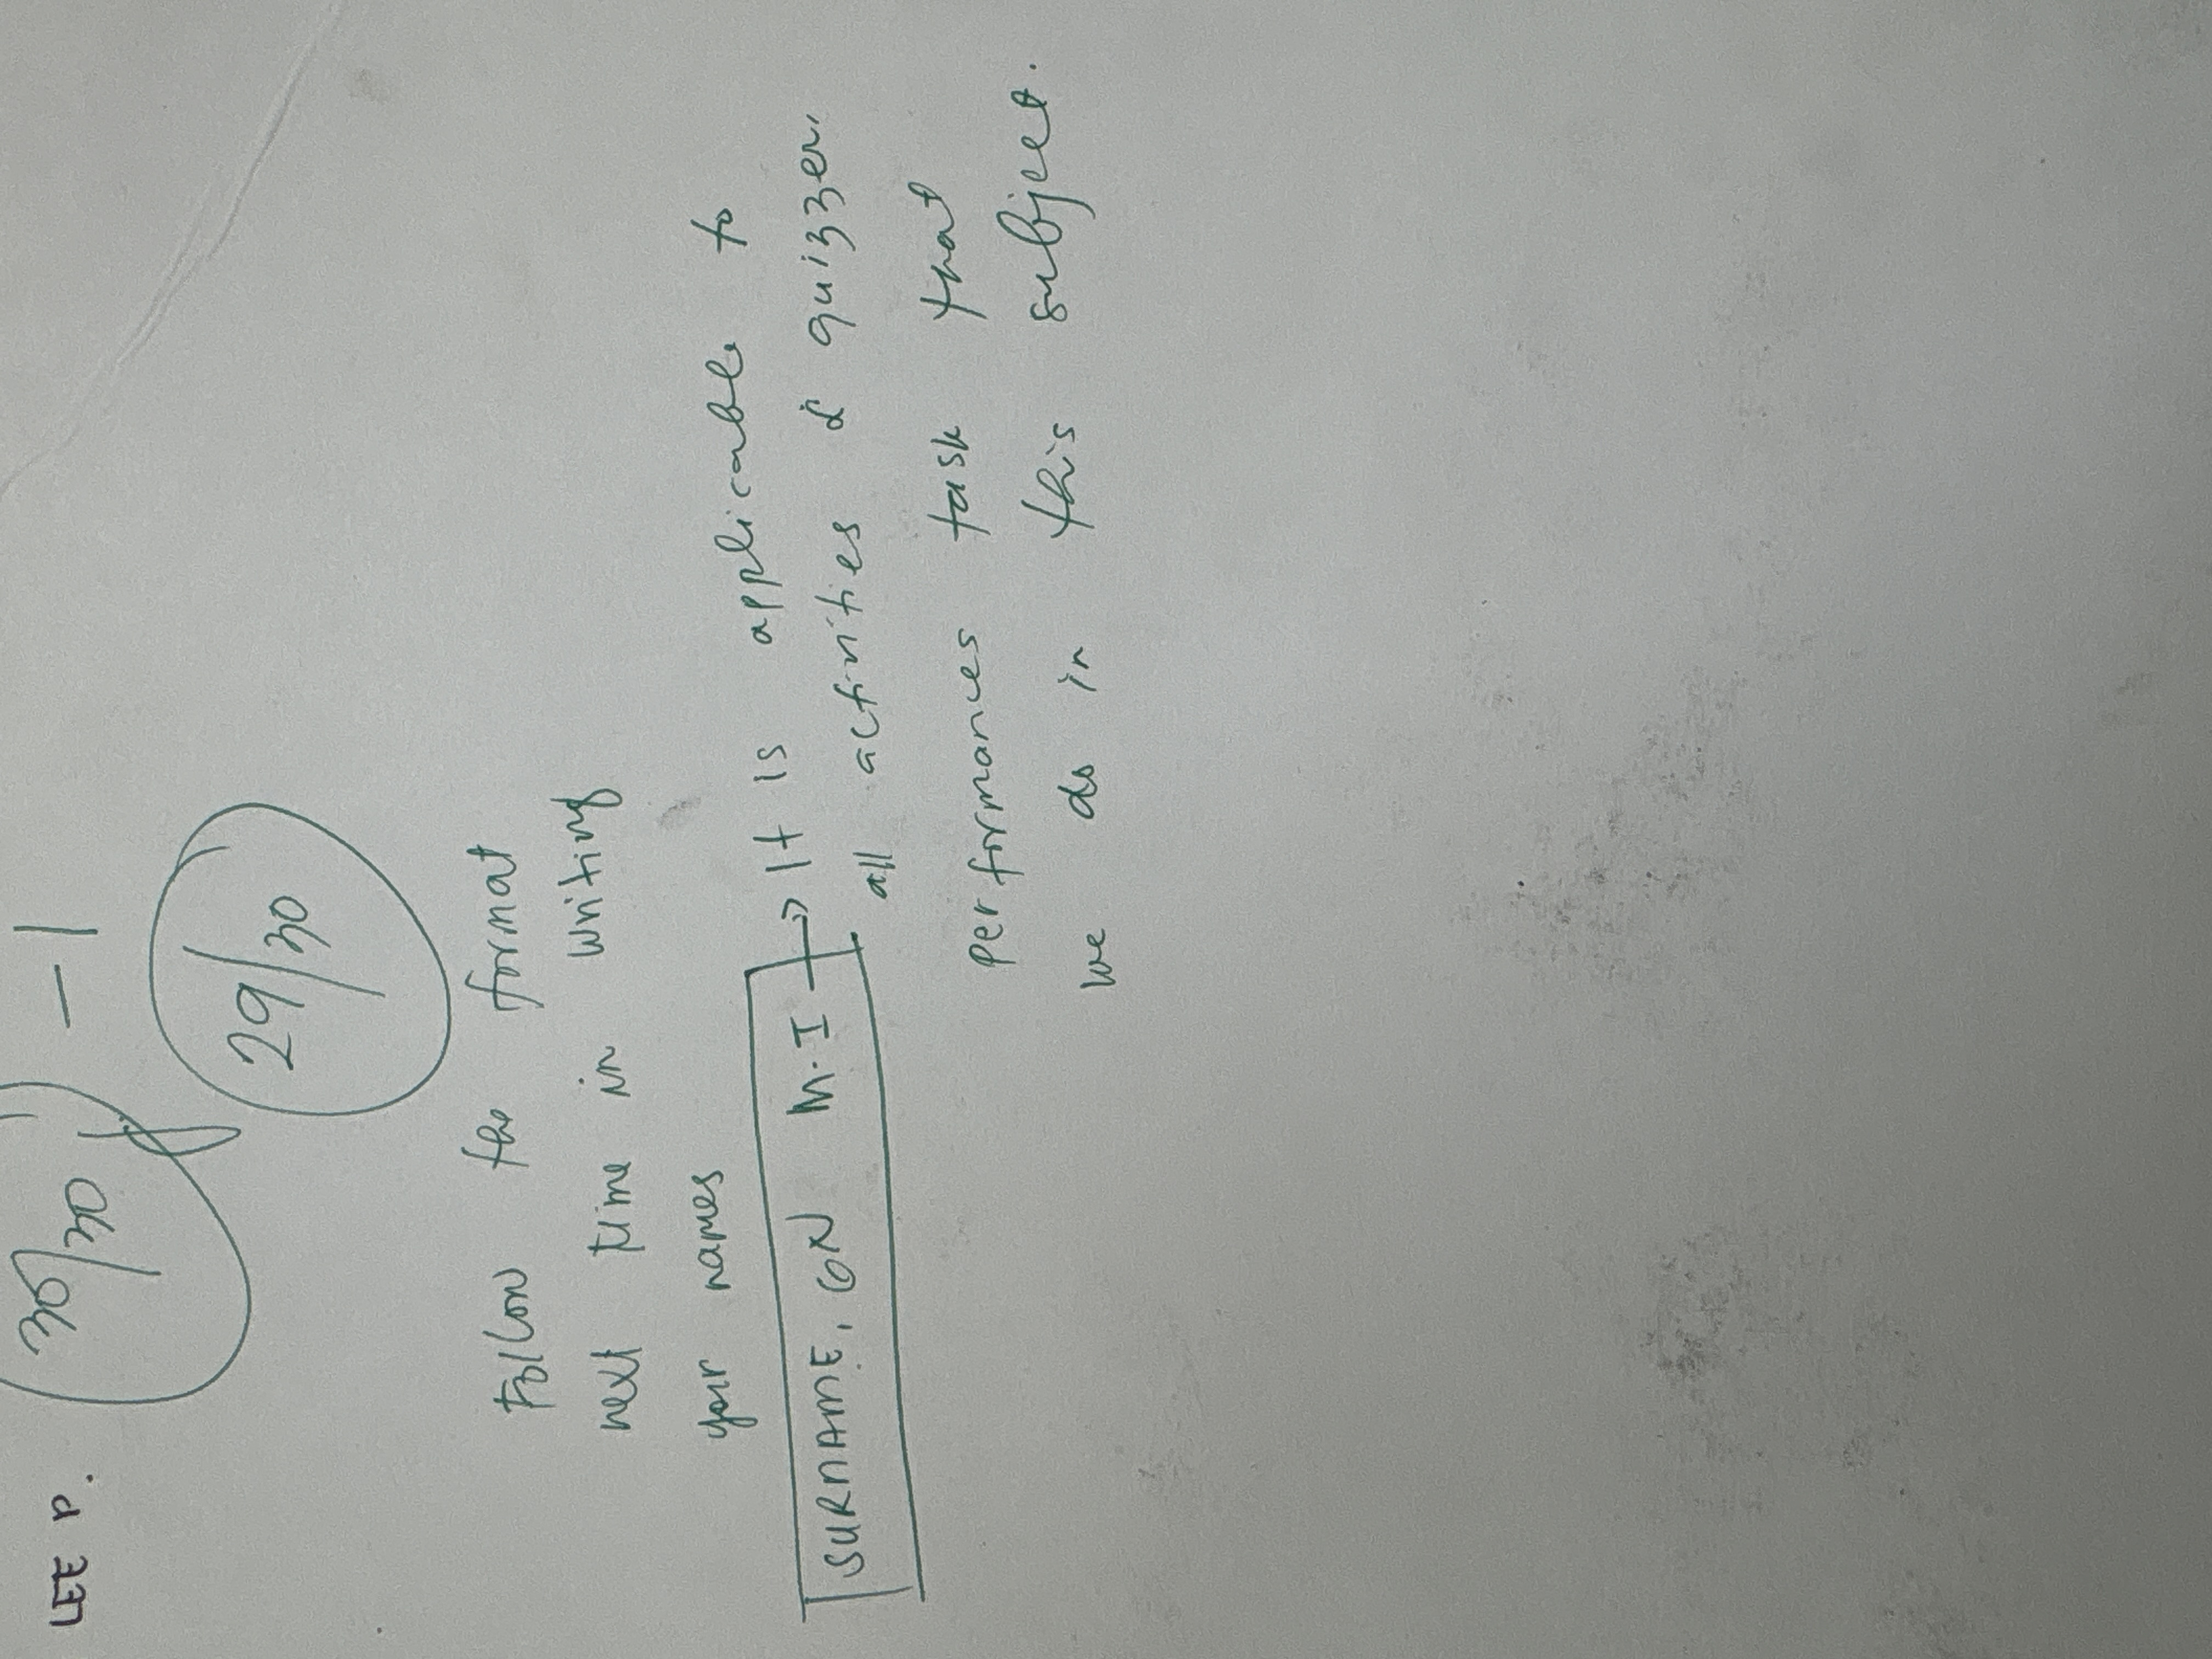 30/30 - 1
29/30
Follow the format
next time in writing
your names
SURNAME, GN M.I → It is applicable to
all activities & quizzes,
performances task that
we do in this subject.